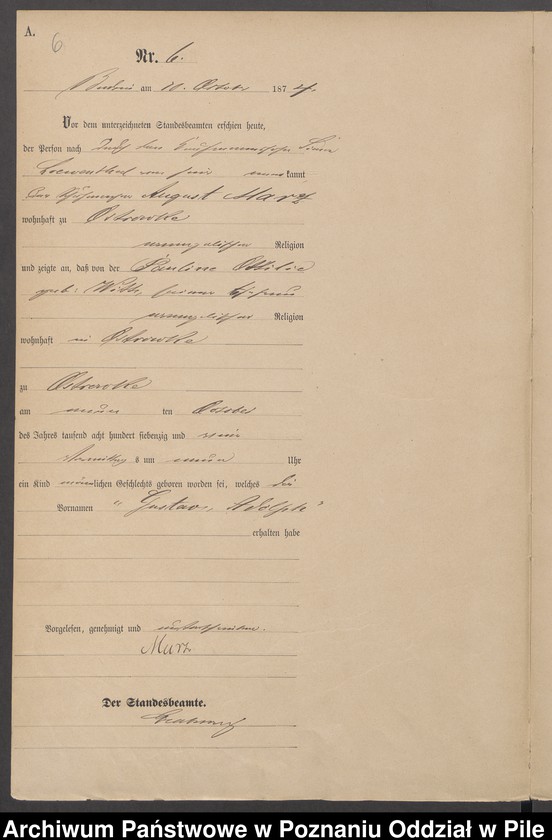 A.
6
Nr. 6.
am 10. October 1874.
Vor dem unterzeichneten Standesbeamten erschien heute,
der Person nach durch den
kannt
August Marz
wohnhaft zu Ostrowke
evangelischer Religion
und zeigte an, daß von der Pauline Ottilie
geb: Witt, seiner Ehefrau
evangelischer Religion
wohnhaft in Ostrowke
zu Ostrowke
am neun ten October
des Jahres tausend acht hundert siebenzig und vier
Vormittags um neun Uhr
ein Kind männlichen Geschlechts geboren worden sei, welches die
Vornamen "Gustav, Adolph"
erhalten habe
Vorgelesen, genehmigt und unterschrieben.
Marz
Der Standesbeamte.
Archiwum Państwowe w Poznaniu Oddział w Pile